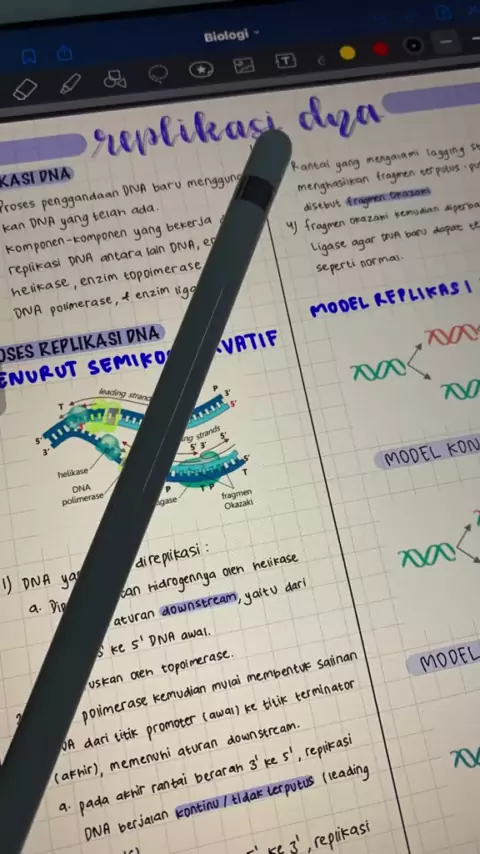 Biologi
replikasi dna
KASI DNA
Proses penggandaan DNA baru
kan DNA yang telah ada.
komponen-komponen yang bekerja
replikasi DNA antara lain DNA,
helikase, enzim topoimerase
DNA polimerase, & enzim
OSES REPLIKASI DNA
ENURUT
leading strand
T
P
3'
5'
5'
3'
strands
5' 3'
5'
helikase
DNA
polimerase
P
T P
T
fragmen
Okazaki
1) DNA direplikasi :
a. hidrogennya oleh helikase
aturan downstream, yaitu dari
ke 5' DNA awal.
oleh topoimerase.
polimerase kemudian mulai membentuk salinan
dari titik promoter (awal) ke titik terminator
(akhir), memenuhi aturan downstream.
a. pada akhir rantai berarah 3' ke 5', replikasi
DNA berjalan kontinu / tidak terputus (leading
ke 3', replikasi
Rantai yang mengalami lagging
menghasilkan fragmen terputus-
disebut fragmen okazaki
4) fragmen okazaki kemudian
Ligase agar DNA baru dapat
seperti normal.
MODEL REPLIKASI
MODEL
MODEL